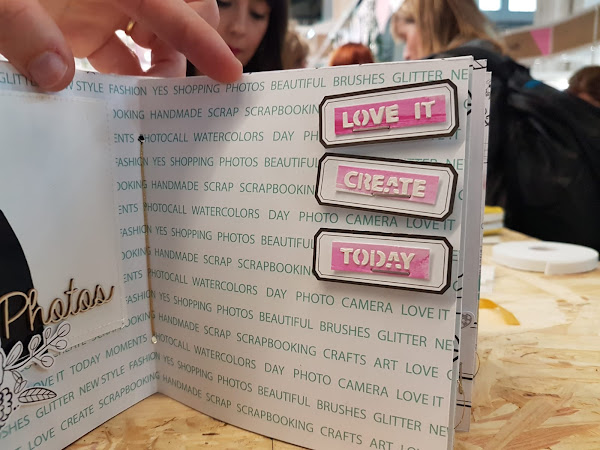 GLITTER NEW STYLE FASHION
Photos
LOVE IT TODAY MOMENTS
GLITTER NEW STYLE FASHION
ART LOVE CREATE SCRAPBOOKING
YES SHOPPING PHOTOS BEAUTIFUL BRUSHES GLITTER NEW
HANDMADE SCRAP SCRAPBOOKING
PHOTOCALL WATERCOLORS DAY PHOTO
FASHION YES SHOPPING PHOTOS BEAUTIFUL
HANDMADE SCRAP SCRAPBOOKING
PHOTOCALL WATERCOLORS DAY PHOTO CAMERA LOVE IT
YES SHOPPING PHOTOS
HANDMADE SCRAP SCRAPBOOKING
WATERCOLORS DAY PHOTO CAMERA LOVE IT
YES SHOPPING PHOTOS BEAUTIFUL BRUSHES GLITTER
HANDMADE SCRAP SCRAPBOOKING CRAFTS ART LOVE
WATERCOLORS DAY PHOTO CAMERA LOVE IT
YES SHOPPING PHOTOS BEAUTIFUL BRUSHES GLITTER
HANDMADE SCRAP SCRAPBOOKING CRAFTS ART LOVE
LOVE IT
CREATE
TODAY